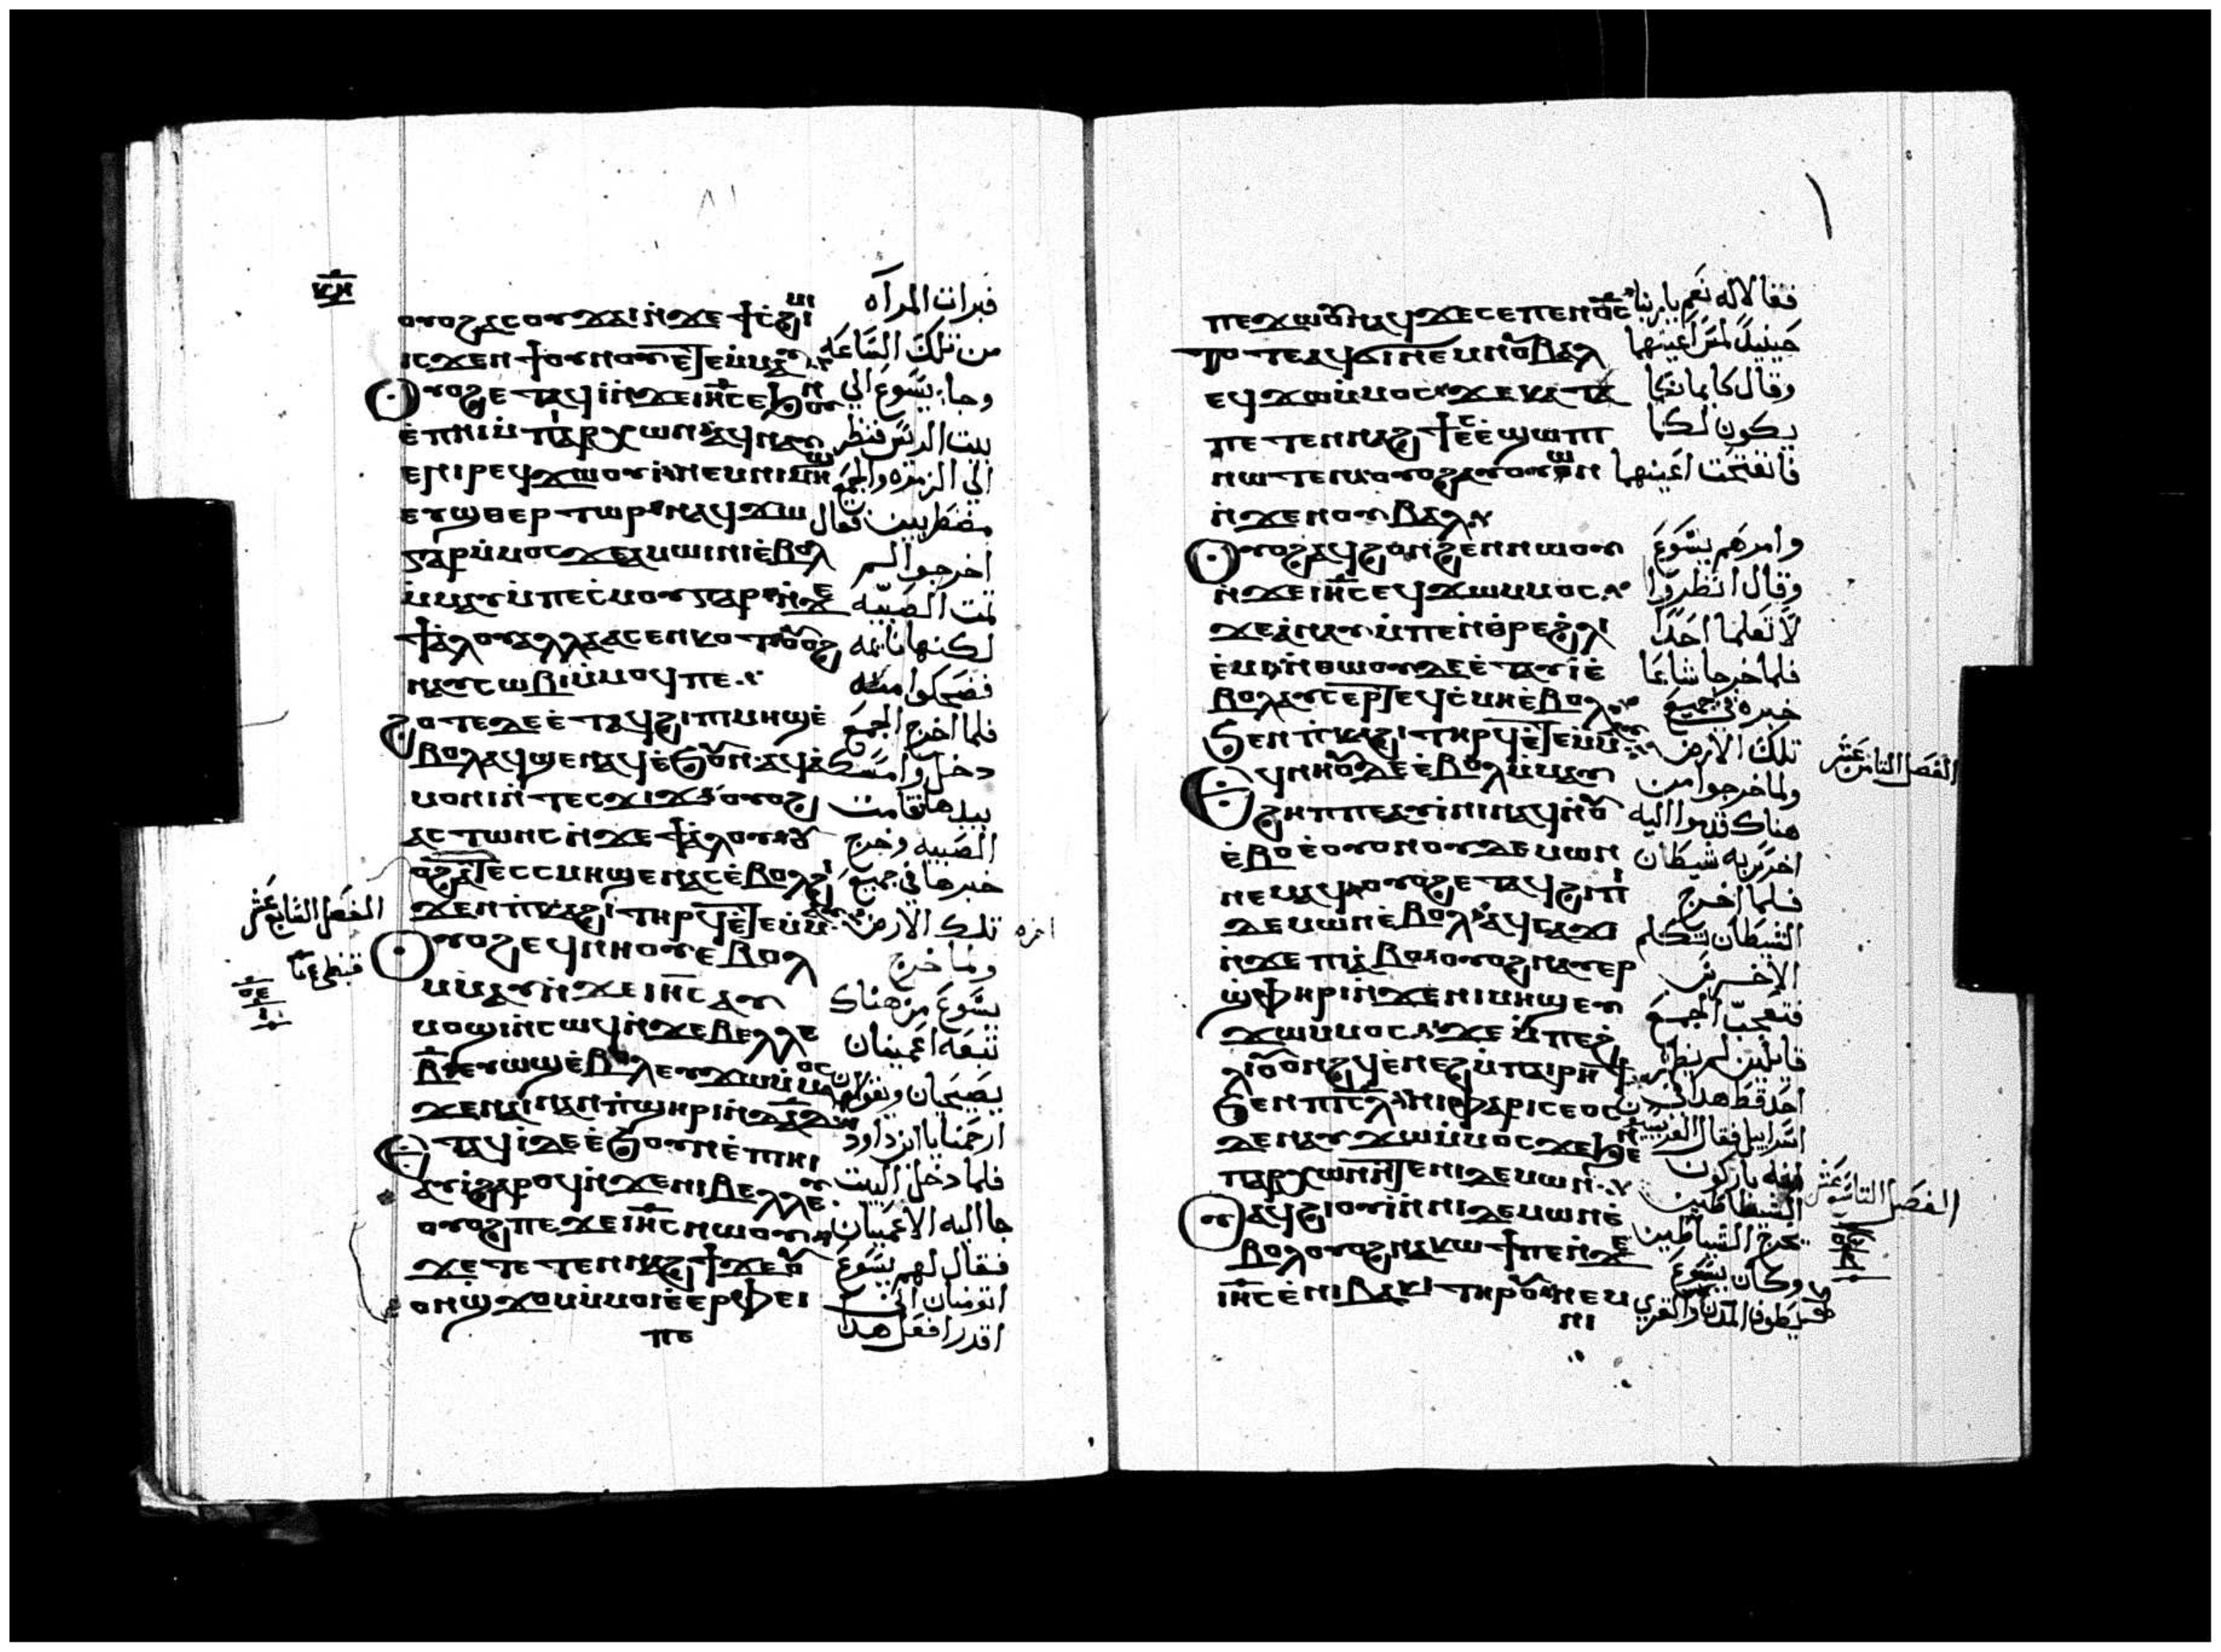 ⲟⲩⲟϩ ⲁⲥⲟⲩϫⲁⲓ ⲛ̇ϫⲉ ϯⲥ̇ϩⲓⲙⲓ
ⲓⲥϫⲉⲛ ϯⲟⲩⲛⲟⲩ ⲉ̇ⲧⲉⲙ̇ⲙⲁⲩ
ⲟⲩⲟϩ ⲉⲧⲁϥⲓ̇ ⲛ̇ϫⲉ ⲓⲏ̅ⲥ ⲉϧⲟⲩⲛ
ⲉ̇ⲡⲏⲓ ⲙ̇ⲡⲓⲁⲣⲭⲱⲛ ⲁϥⲛⲁⲩ
ⲉⲛⲓⲣⲉϥϫⲱ ⲟⲩⲓ̇ ⲛⲉⲙ ⲛⲓⲙⲏϣ
ⲉⲩϣⲑⲉⲣⲧⲱⲣ ⲛⲁϥϫⲱ
ⲅⲁⲣ ⲙ̇ⲙⲟⲥ ϫⲉ ⲙⲁϣⲉⲛⲱⲧⲉⲛ ⲉ̇ⲃⲟⲗ
ⲙ̇ⲙⲁⲩ ⲙ̇ⲡⲉⲥⲙⲟⲩ ⲅⲁⲣ ⲛ̇ϫⲉ
ϯⲁ̇ⲗⲟⲩ ⲁⲗⲗⲁ ⲁⲥⲉⲛⲕⲟⲧ ⲟⲩⲟϩ
ⲛⲁⲩⲥⲱⲃⲓ ⲙ̇ⲙⲟϥ ⲡⲉ
ϩⲟⲧⲉ ⲇⲉ ⲉ̇ⲧⲁϥϩⲓ ⲡⲓⲙⲏϣ ⲉ̇
ⲃⲟⲗ ⲁϥϣⲉⲛⲁϥ ⲉ̇ϧⲟⲩⲛ ⲁϥⲁ̇
ⲙⲟⲛⲓ ⲛ̇ⲧⲉⲥϫⲓϫ ⲟⲩⲟϩ
ⲁⲥⲧⲱⲛⲥ ⲛ̇ϫⲉ ϯⲁ̇ⲗⲟⲩ ⲟⲩ
ⲟϩ ⲁ̇ⲧⲉⲥⲥⲙⲏ ϣⲉⲛⲁⲥ ⲉ̇ⲃⲟⲗ ϩⲓ
ϫⲉⲛ ⲡ̇ⲕⲁϩⲓ ⲧⲏⲣϥ ⲉ̇ⲧⲉⲙ̇ⲙⲁⲩ
ⲟⲩⲟϩ ⲉϥⲛⲏⲟⲩ ⲉⲃⲟⲗ
ⲙ̇ⲙⲁⲩ ⲛ̇ϫⲉ ⲓⲏ̅ⲥ ⲁⲩ
ⲙⲟϣⲓ ⲛ̇ⲥⲱϥ ⲛ̇ϫⲉ ⲃⲉⲗⲗⲉ
ⲃ̅ ⲉⲩⲱϣ ⲉ̇ⲃⲟⲗ ⲉⲩϫⲱ ⲙ̇ⲙⲟⲥ
ϫⲉ ⲛⲁⲓ ⲛⲁⲛ ⲡ̇ϣⲏⲣⲓ ⲛ̇ⲇⲁ̅ⲇ
ⲉⲧⲁϥⲓ̇ ⲇⲉ ⲉ̇ϧⲟⲩⲛ ⲉ̇ⲡⲏⲓ
ⲁⲩⲓ̇ ϩⲁⲣⲟϥ ⲛ̇ϫⲉ ⲛⲓⲃⲉⲗⲗⲉⲩ
ⲟⲩⲟϩ ⲡⲉϫⲉ ⲓⲏ̅ⲥ ⲛⲱⲟⲩ
ϫⲉ ⲧⲉⲧⲉⲛⲛⲁϩϯ ϫⲉ ⲟⲩ
ⲟⲛ ϣϫⲟⲙ ⲙ̇ⲙⲟⲓ ⲉ̇ⲉⲣ ⲫⲁⲓ
فبرات المرآه
من تلك الساعه
وجا يسوع الي
بيت الريس فنظر
الي الزمره والجمع
مضطربين فقال
اخرجوا لم
تمت الصبيه
لكنها نايمه
فضحكوا منه
فلما اخرج الجمع
دخل وامسك
بيدها فقامت
الصبيه وخرج
خبرها في جميع
تلك الارض
ولما خرج
يسوع من هناك
تبعه اعميان
يصيحان ويقولان
ارحمنا يا ابن داود
فلما دخل البيت
جا اليه الاعميان
فقال لهم يسوع
اتومنان اني
اقدر افعل هذا
الفصل السابع عشر
ⲡⲉϫⲱⲟⲩ ⲛⲁϥ ϫⲉ ⲥⲉ ⲡⲉⲛⲟ̅ⲥ
ⲧⲟⲧⲉ ⲁϥϭⲓ ⲛⲉⲙ ⲛⲟⲩⲃⲁⲗ
ⲉϥϫⲱ ⲙ̇ⲙⲟⲥ ϫⲉ ⲕⲁⲧⲁ
ⲡⲉⲧⲉⲛⲛⲁϩϯ ⲉⲥⲉ̇ϣⲱⲡⲓ
ⲛⲱⲧⲉⲛ ⲟⲩⲟϩ ⲁⲩⲟⲩⲱⲛ
ⲛ̇ϫⲉ ⲛⲟⲩⲃⲁⲗ
ⲟⲩⲟϩ ⲁϥϩⲟⲛϩⲉⲛ ⲛⲱⲟⲩ
ⲛ̇ϫⲉ ⲓⲏ̅ⲥ ⲉϥϫⲱ ⲙⲙⲟⲥ
ϫⲉ ⲁ̇ⲛⲁⲩ ⲙ̇ⲡⲉⲛⲑⲣⲉ ϩⲗⲓ
ⲉ̇ⲙⲓ ⲛ̇ⲑⲱⲟⲩ ⲇⲉ ⲉ̇ⲧⲁⲩⲓ̇ ⲉ̇
ⲃⲟⲗ ⲁⲩⲥⲉⲣ ⲧⲉϥⲥ̇ⲙⲏ ⲉ̇ⲃⲟⲗ
ϧⲉⲛ ⲡ̇ⲕⲁϩⲓ ⲧⲏⲣϥ ⲉ̇ⲧⲉⲙ̇ⲙⲁⲩ
ⲉⲩⲛⲏⲟⲩ ⲇⲉ ⲉ̇ⲃⲟⲗ ⲙ̇ⲙⲁⲩ
ϩⲏⲡⲡⲉ ⲁⲩⲓ̇ⲛⲓ ⲛⲁϥ ⲛ̇ⲟⲩ
ⲉ̇ⲃⲟ ⲉ̇ⲟⲩⲟⲛ ⲟⲩⲇⲉⲙⲱⲛ
ⲛⲉⲙⲁϥ ⲟⲩⲟϩ ⲉⲧⲁϥϩⲓ ⲡⲓ
ⲇⲉⲙⲱⲛ ⲉ̇ⲃⲟⲗ ⲁϥⲥⲁϫⲓ
ⲛ̇ϫⲉ ⲡⲓⲉ̇ⲃⲟ ⲟⲩⲟϩ ⲛⲁⲩⲉⲣ
ϣ̇ⲫⲏⲣⲓ ⲛ̇ϫⲉ ⲛⲓⲙⲏϣ ⲉⲩ
ϫⲱ ⲙⲙⲟⲥ ϫⲉ ⲙ̇ⲡⲉϩ
ⲗⲓ ⲟⲩⲟⲛϩϥ ⲉ̇ⲛⲉϩ ⲙ̇ⲡⲁⲓⲣⲏϯ
ϧⲉⲛ ⲡⲓⲥ̅ⲗ ⲛⲓⲫⲁⲣⲓⲥⲉⲟⲥ
ⲇⲉ ⲛⲁⲩϫⲱ ⲙ̇ⲙⲟⲥ ϫⲉ ϧⲉⲛ
ⲡⲁⲣⲭⲱⲛ ⲛ̇ⲧⲉ ⲛⲓⲇⲉⲙⲱⲛ
ⲁϥϩⲓⲟⲩⲓ̇ ⲛ̇ⲛⲓⲇⲉⲙⲱⲛ ⲉ̇
ⲃⲟⲗ ⲟⲩⲟϩ ⲛⲁⲕⲱϯ ⲡⲉ ⲛ̇ϫⲉ
ⲓⲏ̅ⲥ ⲉ̇ⲛⲓⲃⲁⲕⲓ ⲧⲏⲣⲟⲩ ⲛⲉⲙ
ⲛⲓ
فقالا له نعم يا ربنا
حينيذ لمس اعينهما
وقال كايمانكما
يكون لكما
فانفتحت اعينهما
وامرهم يسوع
وقال انظروا
لا تعلما احدا
فلما خرجا شاعا
خبره في جميع
تلك الارض
ولما خرجوا من
هناك قدموا اليه
اخرس به شيطان
فلما اخرج
الشيطان تكلم
الاخرس
فتعجب الجمع
قايلين لم يظهر
احد قط هكذا في
اسراييل فقال الفريسيين
انه باركون
الشياطين
يخرج الشياطين
وكان يسوع
يطوف المدن والقري
الفصل الثامن عشر
الفصل التاسع عشر